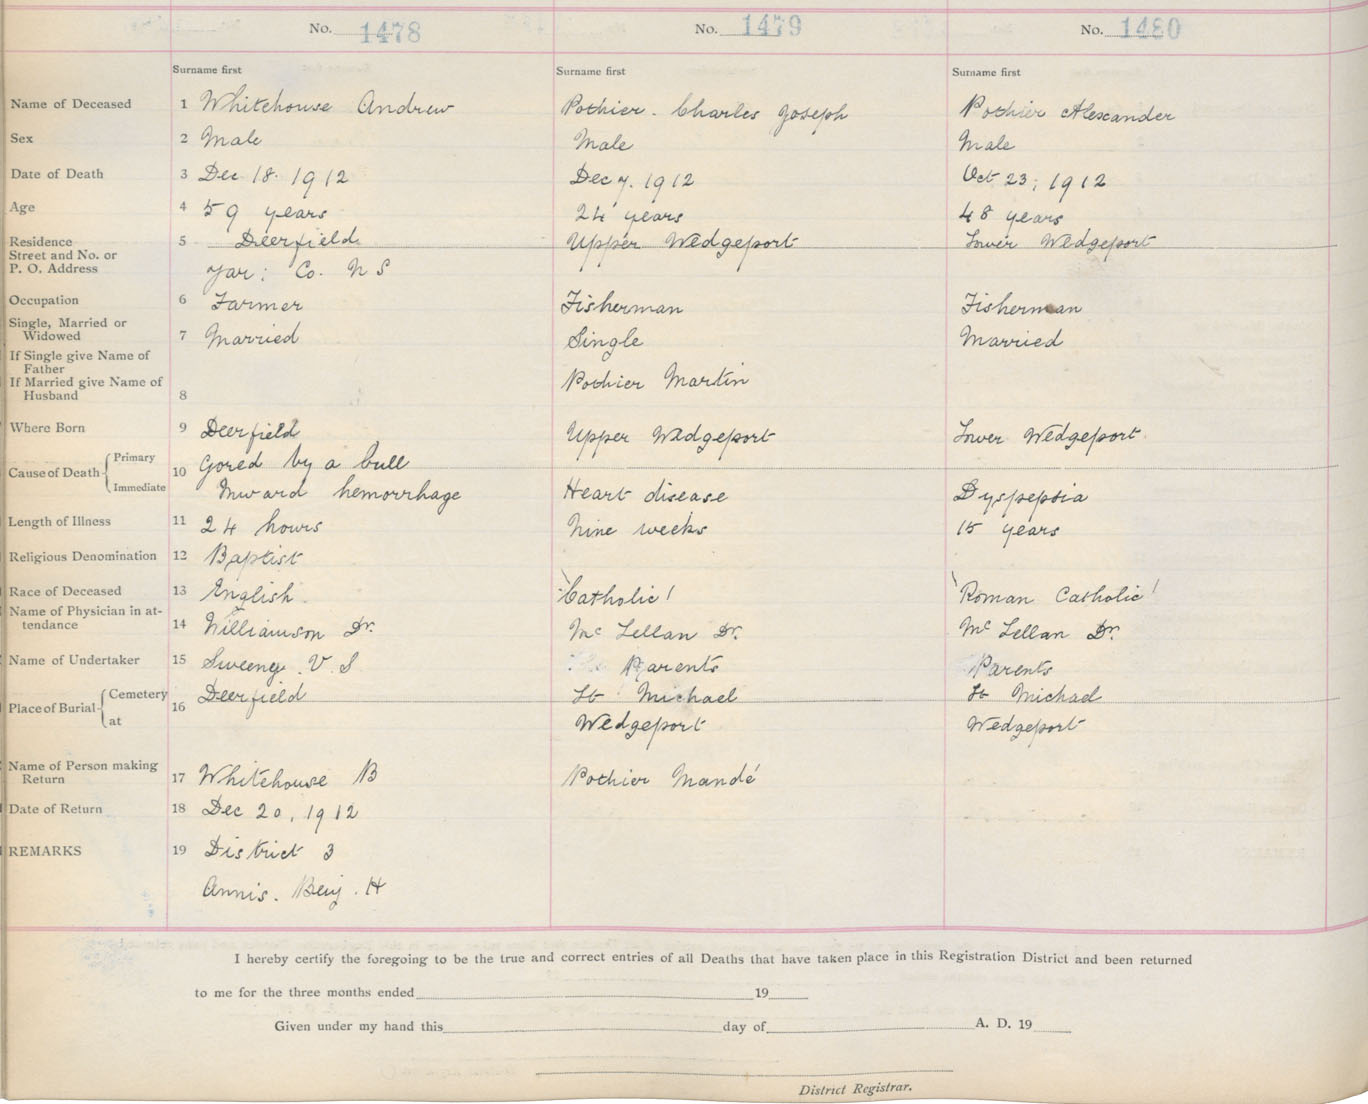 No. 1478 No. 1479 No. 1480
Surname first Surname first Surname first
Name of Deceased 1 Whitehouse Andrew Pothier. Charles Joseph Pothier Alexander
Sex 2 Male Male Male
Date of Death 3 Dec 18. 1912 Dec 7. 1912 Oct 23, 1912
Age 4 59 years 24 years 48 years
Residence 5 Deerfield Upper Wedgeport Lower Wedgeport
Street and No. or
P. O. Address Yar: Co. N S
Occupation 6 Farmer Fisherman Fisherman
Single, Married or
Widowed 7 Married Single Married
If Single give Name of
Father
If Married give Name of Pothier Martin
Husband 8
Where Born 9 Deerfield Upper Wedgeport Lower Wedgeport
Cause of Death Primary 10 Gored by a bull
Immediate Inward hemorrhage Heart disease Dyspepsia
Length of Illness 11 24 hours Nine weeks 15 years
Religious Denomination 12 Baptist
Race of Deceased 13 English Catholic Roman Catholic
Name of Physician in at-
tendance 14 Williamson Dr. Mc Lellan Dr. Mc Lellan Dr.
Name of Undertaker 15 Sweeny V S Parents Parents
Place of Burial Cemetery 16 Deerfield St Michael St Michael
at Wedgeport Wedgeport
Name of Person making
Return 17 Whitehouse B Pothier Mandé
Date of Return 18 Dec 20, 1912
REMARKS 19 District 3
Annis. Benj. H
I hereby certify the foregoing to be the true and correct entries of all Deaths that have taken place in this Registration District and been returned
to me for the three months ended 19
Given under my hand this day of A. D. 19
District Registrar.